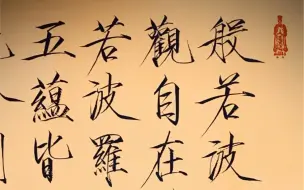 般若波
觀自在
若波羅
五蘊皆